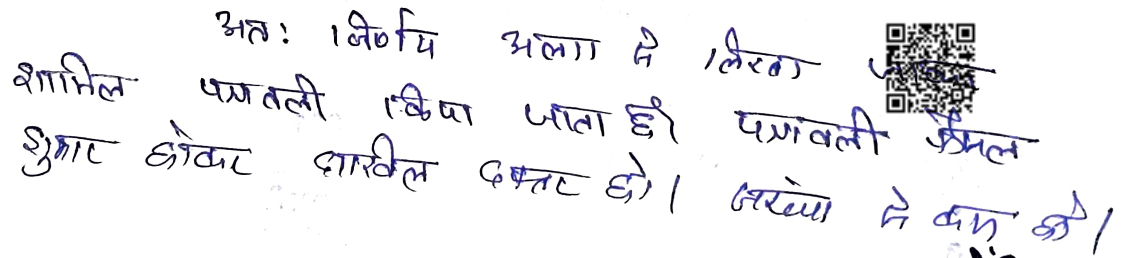 अतः निर्णय अलग से लिखा जाकर
शामिल पत्रावली किया जाता है। पत्रावली फैसल
शुमार होकर दाखिल दफ्तर हो। नम्बर से कम हो।